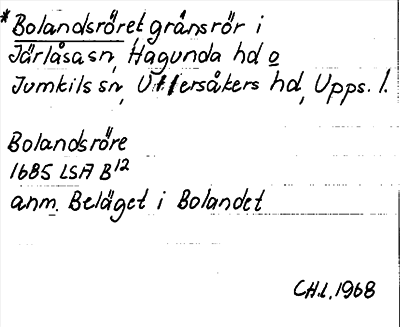 *Bolandsröret gränsrör i
Järlåsa sn, Hagunda hd o
Jumkils sn, Ullersåkers hd, Upps. l.
Bolandsröre
1685 LSA B12
anm. Beläget i Bolandet
CHl. 1968